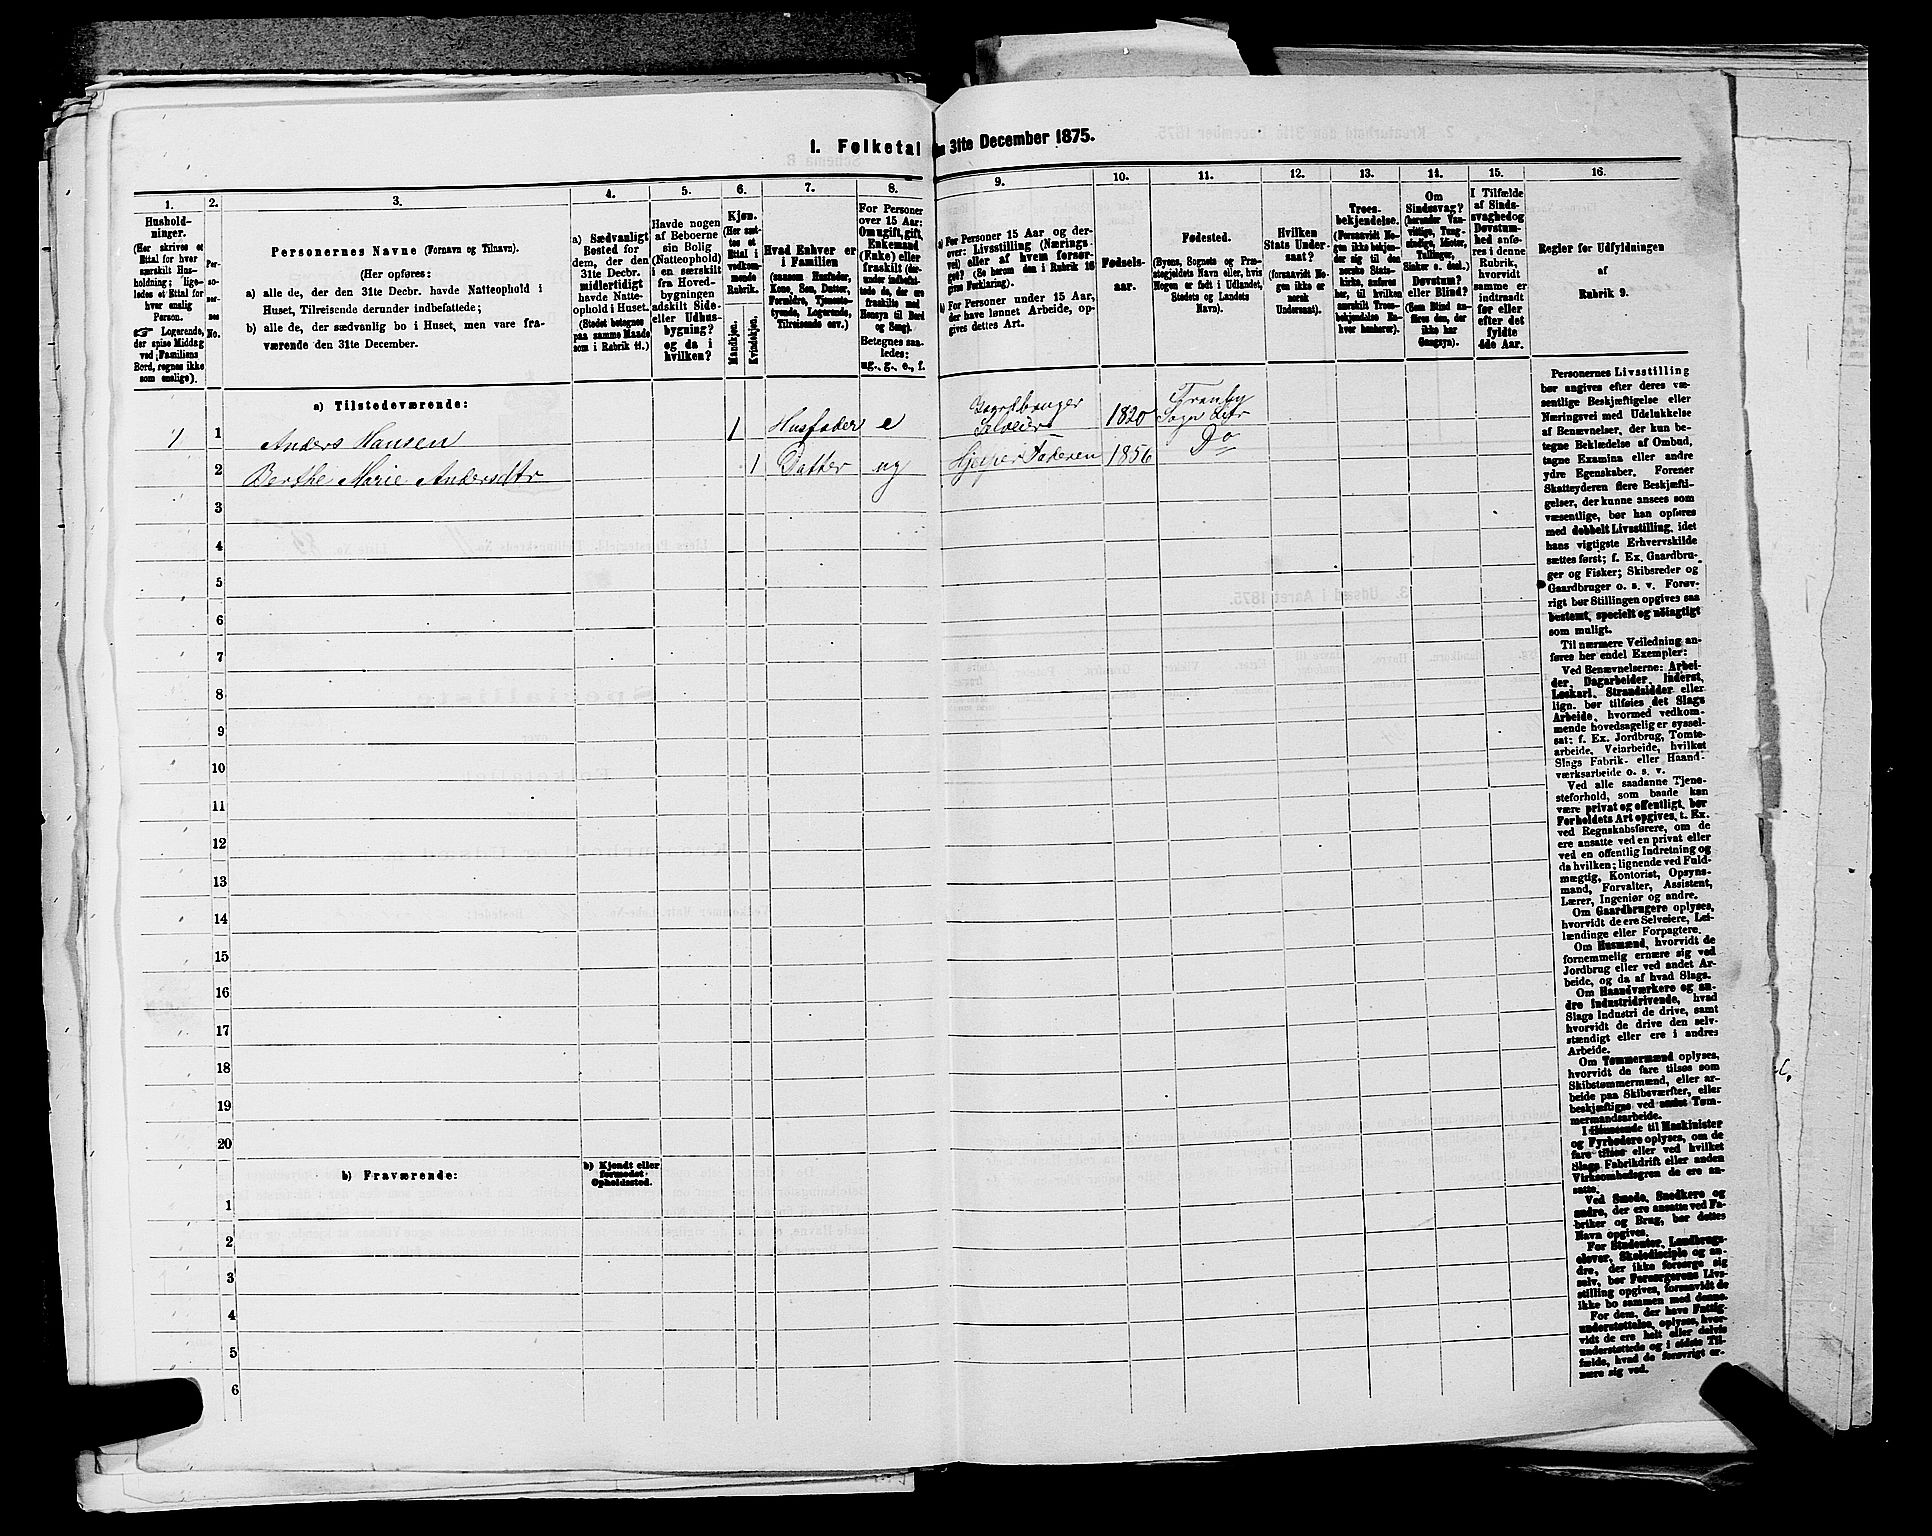 I. Folketal
31te December 1875.
1.
2.
3.
4.
5.
6.
7.
8.
9.
10.
11.
12.
13.
14.
15.
16.
Hushold-
ninger.
(Her skrives et
Ettal for hver
særskilt Hus-
holdning; lige-
ledes et Ettal for
hver enlig
Person.
☞ Logerende,
der spise Middag
ved Familiens
Bord, regnes ikke
som enslige).
Per-
so-
ner-
nes
No.
Personernes Navne (Fornavn og Tilnavn).
(Her opføres:
a) alle de, der den 31te Decbr. havde Natteophold i
Huset, Tilreisende derunder indbefattede;
b) alle de, der sædvanlig bo i Huset, men vare fra-
værende den 31te December.
a) Sædvanligt
Bosted for
dem, der den
31te Decbr.
midlertidigt
havde Natte-
ophold i Huset.
(Stedet betegnes
paa samme Maade
som i Rubrik 11.)
Havde nogen
af Beboerne
sin Bolig
(Natteophold)
i en særskilt
fra Hoved-
bygningen
adskilt Side-
eller Udhus-
bygning?
og da i
hvilken?
Kjøn.
(Her sæt-
tes et
Ettal i
vedkom-
mende
Rubrik.
Mandkjøn.
Kvindekjøn.
Hvad Enhver er
i Familien
(saasom Husfader,
Kone, Søn, Datter,
Forældre, Tjeneste-
tyende, Logerende,
Tilreisende osv.)
For Personer
over 15 Aar:
Om ugift, gift,
Enkemand
(Enke) eller
fraskilt
Betegnes saa-
ledes:
ug., g., e., f.
a) For Personer 15 Aar og der-
over: Livsstilling (Nærings-
vei) eller af hvem forsør-
get? (Se herom den i Rubrik 16
givne Forklaring).
b) For Personer under 15 Aar,
der have lønnet Arbeide, op-
gives dettes Art.
Fødsels-
aar.
Fødested.
(Byens, Sognets og Præ-
stegjeldets Navn eller, hvis
Nogen er født i Udlandet,
Stedets og Landets
Navn).
Hvilken
Stats Under-
saat?
(forsaavidt No-
gen ikke er
norsk
Undersaat).
Troes-
bekjendelse.
(Forsaavidt No-
gen ikke bekjen-
der sig til den
norske Stats-
kirke, anføres
her, til hvilken
særskilt Troes-
bekjendelse En-
hver henhører).
Om
Sindssvag?
(herunder Van-
vittige, Tung-
sindige, Idioter,
Tullinger,
Sinker o. desl.)
Døvstum?
eller Blind?
(Som Blind an-
føres den, der
ikke har
Gangsyn).
I Tilfælde
af Sinds-
svaghed og
Døvstum-
hed anfø-
res i denne
Rubrik,
hvorvidt
samme er
indtraadt
før eller
efter det
fyldte
4de Aar.
Regler for Udfyldningen
af
Rubrik 9.
a) Tilstedeværende:
1 1 Anders Hansen 1 Husfader e Gaardbruger Selveier 1820 Tranby Sogn Lier
2 Berthe Marie Andersdtr 1 Datter ug Hjelper Faderen 1856 Do
3
4
5
6
7
8
9
10
11
12
13
14
15
16
17
18
19
20
b) Fraværende:
b) Kjendt eller
formodet
Opholdssted.
1
2
3
4
5
6
Personernes Livsstilling
bør angives efter deres væ-
sentlige Beskjæftigelse eller
Næringsvei med Udelukkelse
af Benævnelser, der kun be-
tegne Beklædelse af Ombud,
tagne Examina eller andre
ydre Egenskaber. Forener
Skatteyderen flere Beskjæfti-
gelser, der kunne ansees som
væsentlige, bør han opføres
med dobbelt Livsstilling, idet
hans vigtigste Erhvervskilde
sættes først; f. Ex. Gaardbru-
ger og Fisker; Skibsreder og
Gaardbruger o. s. v. Forøv-
rigt bør Stillingen opgives saa
bestemt, specielt og nøiagtigt
som muligt.
Til nærmere Veiledning an-
føres her endel Exempler:
Ved Benævnelserne: Arbei-
der, Dagarbeider, Inderst,
Løskarl, Strandsidder eller
lign. bør tilføies det Slags
Arbeide, hvormed vedkom-
mende hovedsagelig er syssel-
sat; f. Ex. Jordbrug, Tomte-
arbeide, Veiarbeide, hvilket
Slags Fabrik- eller Haand-
værksarbeide o. s. v.
Ved alle saadanne Tjene-
steforhold, som baade kan
være privat og offentligt, bør
Forholdets Art opgives, t. Ex.
ved Regnskabsførere, om de
ere ansatte ved en privat eller
ved en offentlig Indretning og
da hvilken; lignende ved Fuld-
mægtig, Kontorist, Opsyns-
mand, Forvalter, Assistent,
Lærer, Ingeniør og andre.
Om Gaardbrugere oplyses,
hvorvidt de ere Selveiere, Lei-
lændinge eller Forpagtere.
Om Husmænd, hvorvidt de
fornemmelig ernære sig ved
Jordbrug eller ved andet Ar-
beide, og da af hvad Slags.
Om Haandværkere og an-
dre Industridrivende, hvad
Slags Industri de drive, samt
hvorvidt de drive den selv-
stændigt eller ere i andres
Arbeide.
Om Tømmermænd oplyses,
hvorvidt de fare tilsøs som
Skibstømmermænd, eller ar-
beide paa Skibsværfter, eller
beskjæftiges ved andet Tøm-
mermandsarbeide.
I Henseende til Maskinister
og Fyrbødere oplyses, om de
fare tilsøs eller ved hvilket
Slags Fabrikdrift eller anden
Virksomhedsgren de ere an-
satte.
Ved Smede, Snedkere og
andre, der ere ansatte ved Fa-
briker og Brug, bør dettes
Navn opgives.
For Studenter, Landbrugs-
elever, Skoledisciple og an-
dre, der ikke forsørge sig
selv, bør Forsørgerens Livs-
stilling opgives, forsaavidt de
ikke bo sammen med denne.
For dem, der have Fattig-
understøttelse, oplyses, hvor-
vidt de ere helt eller delvis
understøttede og i sidste Til-
fælde, hvad de forøvrigt er-
nære sig ved.